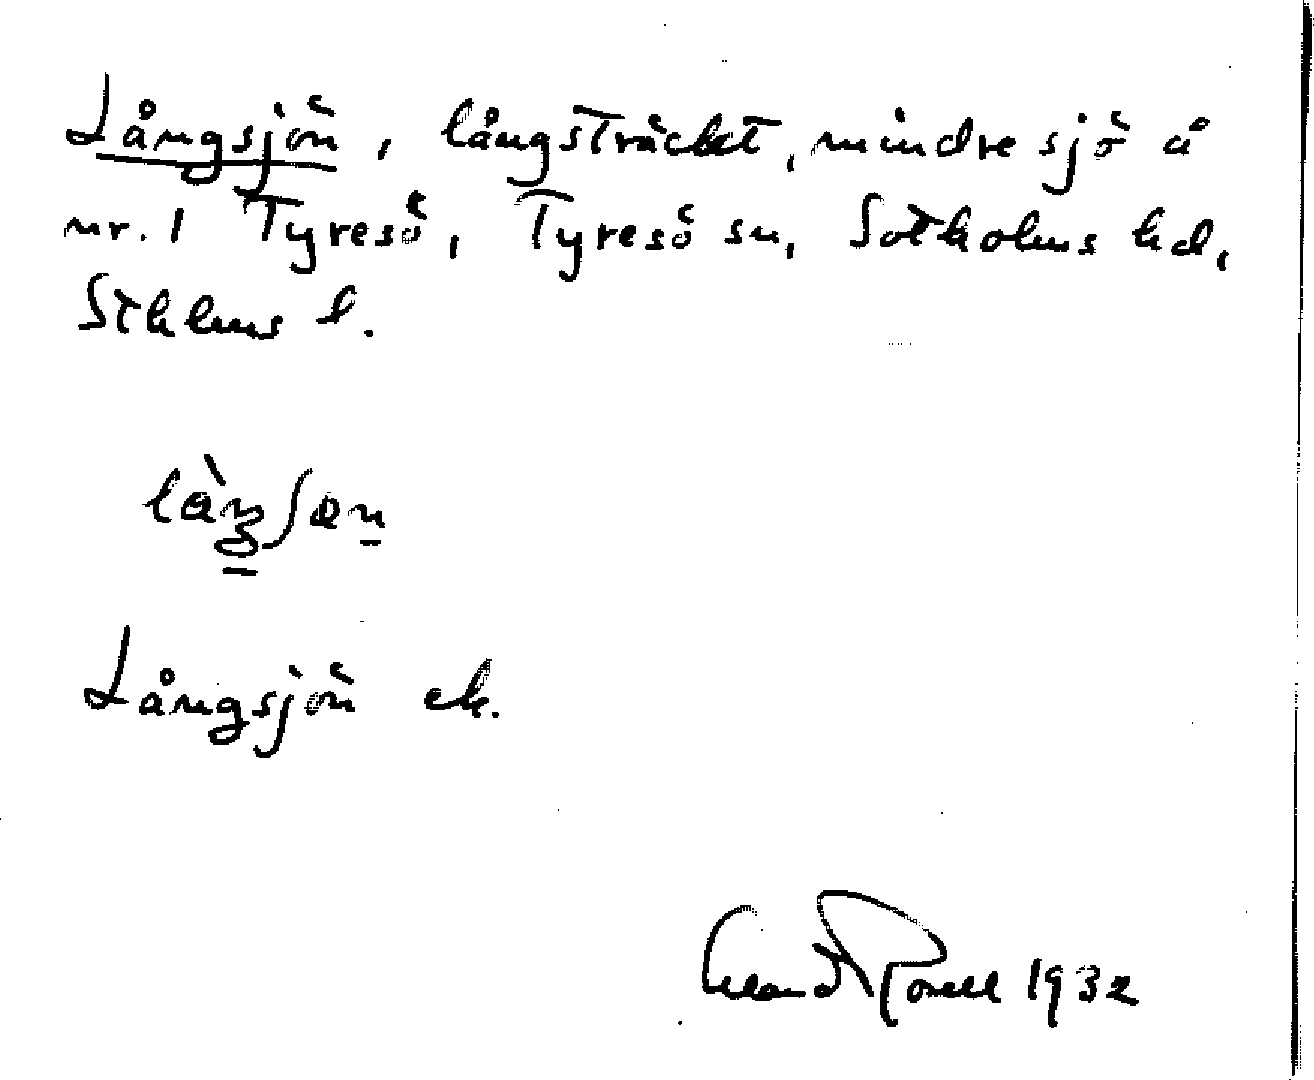 Långsjön, långsträckt, mindre sjö å
nr. 1 Tyresö, Tyresö sn, Sotholms hd,
Sthlms l.
Långsjön ek.
1932